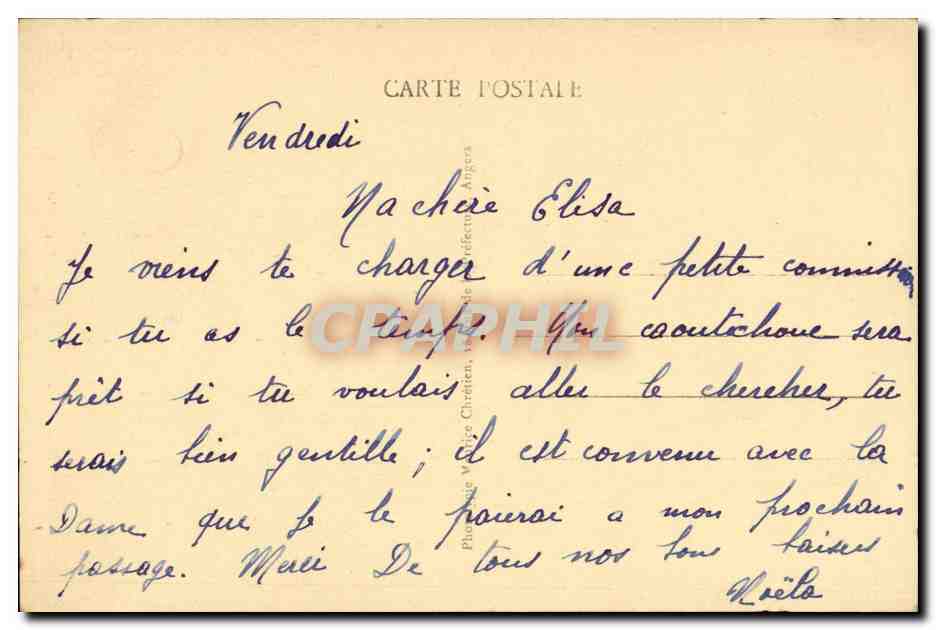 CARTE POSTALE
Vendredi
Ma chère Elisa
Je viens te charger d'une petite commission
si tu as le temps. Mon caoutchouc sera
prêt si tu voulais aller le chercher, tu
serais bien gentille ; il est convenu avec la
Dame que je le paierai a mon prochain
passage. Merci De tous nos bons baisers
Noëla
CPAPHIL
Photographie Maurice Chrétien, de la Préfecture, Angers